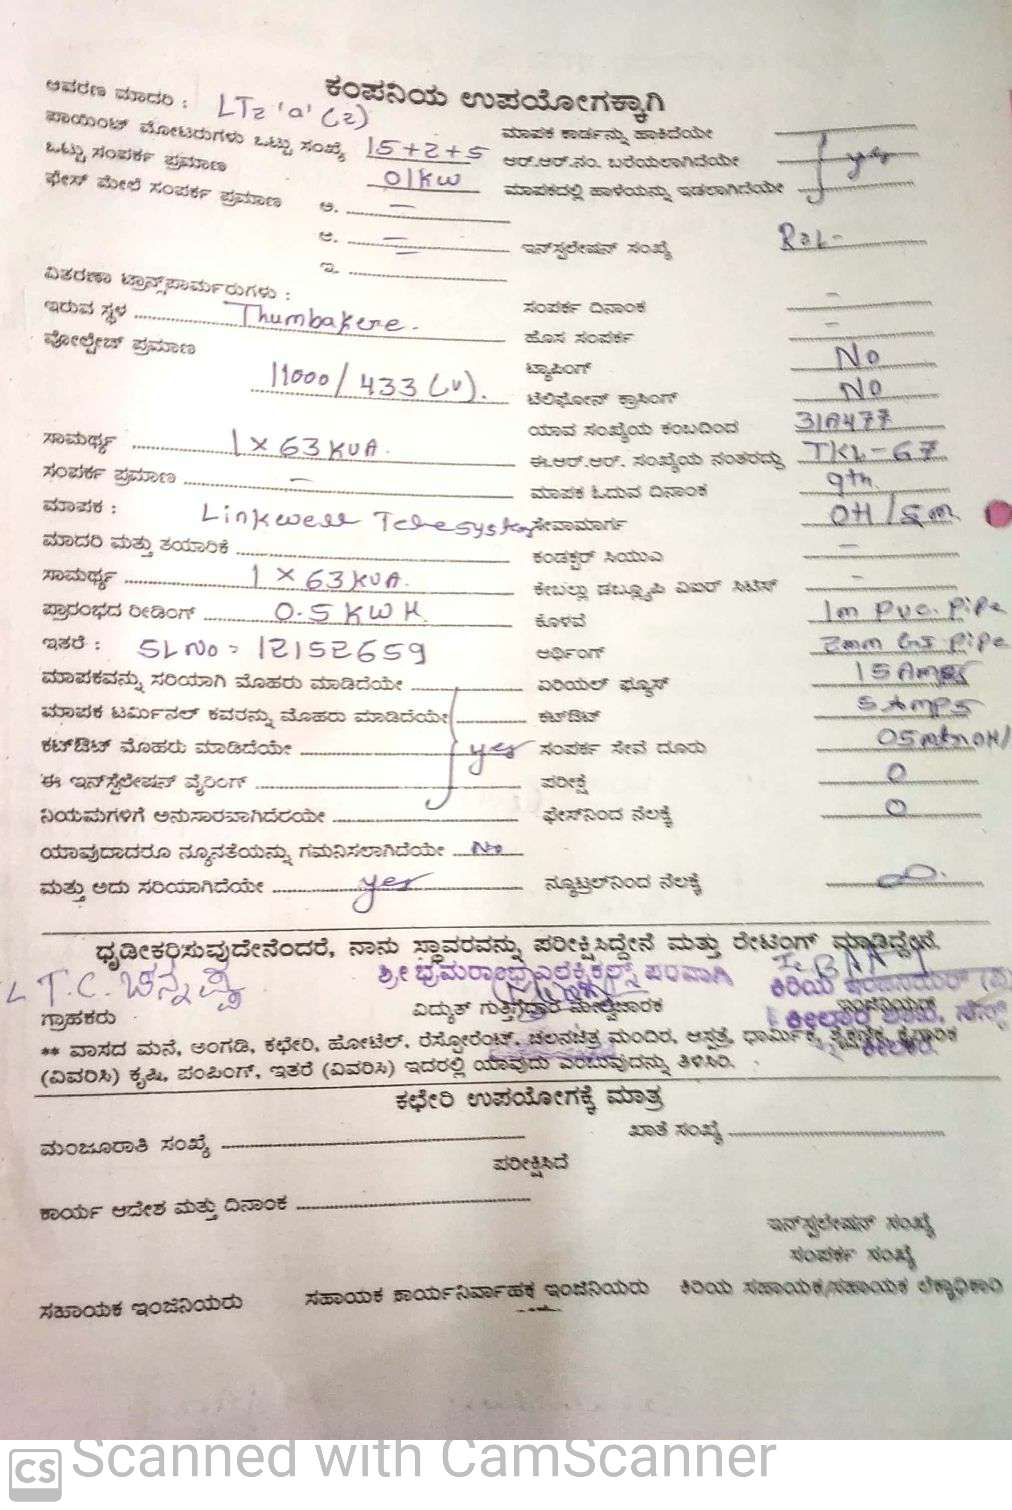 ಕಂಪನಿಯ ಉಪಯೋಗಕ್ಕಾಗಿ
ಆವರಣ ಮಾದರಿ : LT2 'a' (2)
ಪಾಯಿಂಟ್ ಮೋಟರುಗಳು ಒಟ್ಟು ಸಂಖ್ಯೆ 15+2+5
ಮಾಪಕ ಕಾರ್ಡನ್ನು ಹಾಕಿದೆಯೇ
ಒಟ್ಟು ಸಂಪರ್ಕ ಪ್ರಮಾಣ 01KW
ಆರ್.ಆರ್.ನಂ. ಬರೆಯಲಾಗಿದೆಯೇ yes
ಫೇಸ್ ಮೇಲೆ ಸಂಪರ್ಕ ಪ್ರಮಾಣ ಅ. —
ಮಾಪಕದಲ್ಲಿ ಹಾಳೆಯನ್ನು ಇಡಲಾಗಿದೆಯೇ
ಆ. —
ಇನ್ಸ್ಟಲೇಷನ್ ಸಂಖ್ಯೆ
ಇ.
ವಿತರಣಾ ಟ್ರಾನ್ಸ್‌ಫಾರ್ಮರುಗಳು :
ಇರುವ ಸ್ಥಳ Thumbakere.
ಸಂಪರ್ಕ ದಿನಾಂಕ —
ಹೊಸ ಸಂಪರ್ಕ —
ವೋಲ್ಟೇಜ್ ಪ್ರಮಾಣ 11000/433(v).
ಟ್ಯಾಪಿಂಗ್ No
ಟೆಲಿಫೋನ್ ಕ್ರಾಸಿಂಗ್ No
ಯಾವ ಸಂಖ್ಯೆಯ ಕಂಬದಿಂದ
ಸಾಮರ್ಥ್ಯ 1 x 63 KVA.
ಈ.ಆರ್.ಆರ್. ಸಂಖ್ಯೆಯ ನಂತರದ್ದು TKL-67
ಸಂಪರ್ಕ ಪ್ರಮಾಣ —
ಮಾಪಕ ಓದುವ ದಿನಾಂಕ 9th
ಮಾಪಕ : Linkwell Telesystem
ಸೇವಾಮಾರ್ಗ OH/Sm
ಮಾದರಿ ಮತ್ತು ತಯಾರಿಕೆ
ಕಂಡಕ್ಟರ್ ಸಿಯುಎ —
ಸಾಮರ್ಥ್ಯ 1 x 63 KVA.
ಕೇಬಲ್ಲು ಡಬ್ಲ್ಯೂಪಿ ವಿಐರ್ ಸಿಟಿಸ್ —
ಪ್ರಾರಂಭದ ರೀಡಿಂಗ್ 0.5 KWH
ಕೊಳವೆ 1m PVC. Pipe
ಇತರೆ : SL No = 12152659
ಅರ್ಥಿಂಗ್ 2mm GI Pipe
ಮಾಪಕವನ್ನು ಸರಿಯಾಗಿ ಮೊಹರು ಮಾಡಿದೆಯೇ
ಏರಿಯಲ್ ಫ್ಯೂಸ್ 15 Amps
ಮಾಪಕ ಟರ್ಮಿನಲ್ ಕವರನ್ನು ಮೊಹರು ಮಾಡಿದೆಯೇ
ಕಟ್‌ಔಟ್ 5 Amps
ಕಟ್‌ಔಟ್ ಮೊಹರು ಮಾಡಿದೆಯೇ yes
ಸಂಪರ್ಕ ಸೇವೆ ದೂರು
ಈ ಇನ್ಸ್ಟೆಲೇಷನ್ ವೈರಿಂಗ್
ಪರೀಕ್ಷೆ 0
ನಿಯಮಗಳಿಗೆ ಅನುಸಾರವಾಗಿದೆರಯೇ
ಫೇಸ್‌ನಿಂದ ನೆಲಕ್ಕೆ 0
ಯಾವುದಾದರೂ ನ್ಯೂನತೆಯನ್ನು ಗಮನಿಸಲಾಗಿದೆಯೇ No
ಮತ್ತು ಅದು ಸರಿಯಾಗಿದೆಯೇ yes
ನ್ಯೂಟ್ರಲ್‌ನಿಂದ ನೆಲಕ್ಕೆ
ಧೃಡೀಕರಿಸುವುದೇನೆಂದರೆ, ನಾನು ಸ್ಥಾವರವನ್ನು ಪರೀಕ್ಷಿಸಿದ್ದೇನೆ ಮತ್ತು ರೇಟಿಂಗ್ ಮಾಡಿದ್ದೇನೆ.
T.C.
ಗ್ರಾಹಕರು
ವಿದ್ಯುತ್ ಗುತ್ತಿಗೆದಾರ ಮೇಲ್ವಿಚಾರಕ
ಇಂಜಿನಿಯರ್
** ವಾಸದ ಮನೆ, ಅಂಗಡಿ, ಕಛೇರಿ, ಹೋಟೆಲ್, ರೆಸ್ಟೋರೆಂಟ್, ಚಲನಚಿತ್ರ ಮಂದಿರ, ಆಸ್ಪತ್ರೆ, ಧಾರ್ಮಿಕ, ಶೈಕ್ಷಣಿಕ, ಕೈಗಾರಿಕ
(ವಿವರಿಸಿ) ಕೃಷಿ, ಪಂಪಿಂಗ್, ಇತರೆ (ವಿವರಿಸಿ) ಇದರಲ್ಲಿ ಯಾವುದು ಎಂಬುವುದನ್ನು ತಿಳಿಸಿರಿ.
ಕಛೇರಿ ಉಪಯೋಗಕ್ಕೆ ಮಾತ್ರ
ಮಂಜೂರಾತಿ ಸಂಖ್ಯೆ
ಖಾತೆ ಸಂಖ್ಯೆ
ಪರೀಕ್ಷಿಸಿದೆ
ಕಾರ್ಯ ಆದೇಶ ಮತ್ತು ದಿನಾಂಕ
ಇನ್ಸ್ಟಲೇಷನ್ ಸಂಖ್ಯೆ
ಸಂಪರ್ಕ ಸಂಖ್ಯೆ
ಸಹಾಯಕ ಇಂಜಿನಿಯರು
ಸಹಾಯಕ ಕಾರ್ಯನಿರ್ವಾಹಕ ಇಂಜಿನಿಯರು
ಕಿರಿಯ ಸಹಾಯಕ/ಸಹಾಯಕ ಲೆಕ್ಕಾಧಿಕಾರಿ
CS Scanned with CamScanner